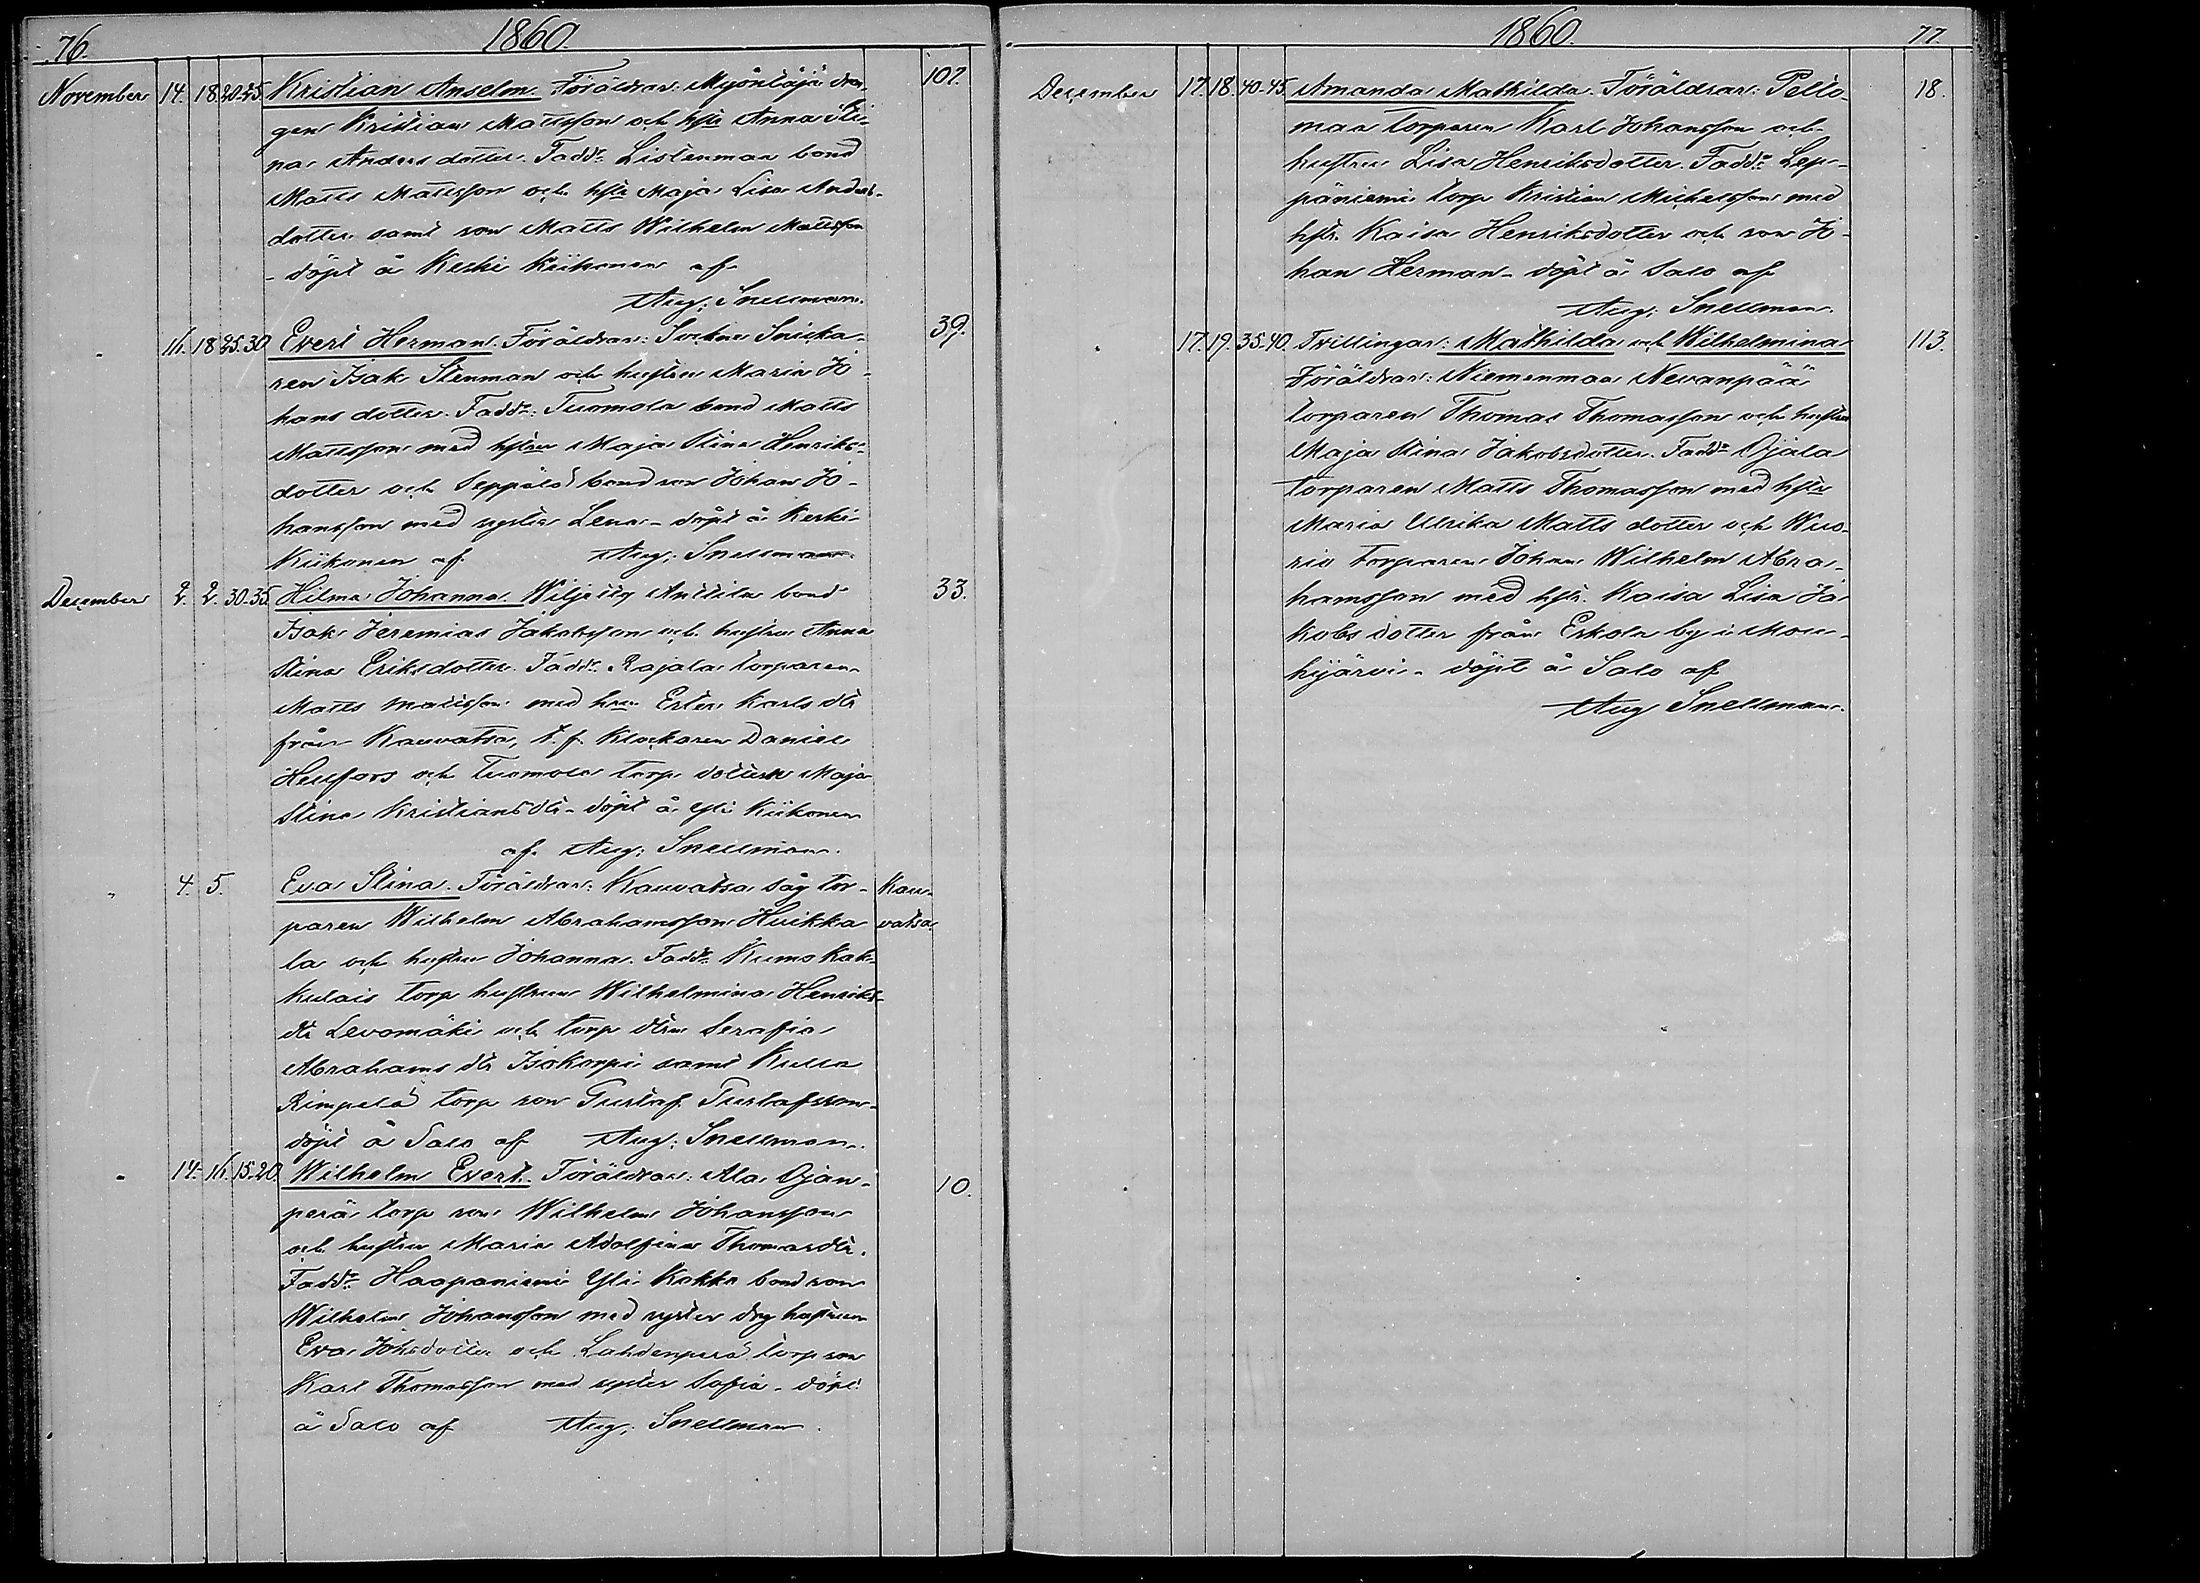 76. 1860.
November 14. 18. 20-25. Kristian Anselm. Föräldrar: Myöntäjä drän- 107.
gen Kristian Mattsson och hstr Anna Sti-
na Anders dotter. Fadd: Listenmaa bond
Matts Mattsson och hstr Maja Lisa Anders-
dotter samt son Matts Wilhelm Mattsson
- döpt å Keski Kiikonen af
Aug: Snellman.
" 16. 18. 25.30. Evert Herman. Föräldrar: Sockne Snicka- 39.
ren Isak Stenman och hustru Maria Jo-
hans dotter. Fadd: Tuomola bond Matts
Mattsson med hstru Maja Stina Henriks-
dotter och Seppälä bond son Johan Jo-
hansson med syster Lena - döpt å Keski-
Kiikonen af Aug: Snellman.
December 2. 2. 30.35. Hilma Johanna. Anttila bond 33.
Isak Jeremias Jakobsson och hustru Anna
Stina Eriksdotter. Fadd: Rajala torparen
Matts Mattsson med hrn Ester Karls dtr
från Kauvatsa, t.f. Klockaren Daniel
och Tuomola torp dottern Maja
Stina Kristians dtr - döpt å Yli Kiikonen
af Aug: Snellman.
" 4. 5. Eva Stina. Föräldrar: Kauvatsa såg tor- Kau-
paren Wilhelm Abrahamsson Huikka- vatsa
la och hustru Johanna. Fadd: Kumo Kak-
kulais torp hustrun Wilhelmina Henriks-
dtr Levomäki och torp dtrn Serafia
Abrahams dtr Isokorpi samt Kulla
Rimpelä torp son Gustaf Gustafsson -
döpt å Salo af Aug: Snellman.
" 14. 16. 15.20. Wilhelm Evert. Föräldrar: Ala Ojan- 10.
perä torp son Wilhelm Johansson
och hustru Maria Adolfina Thomasdtr.
Fadd: Haapaniemi Yli Kokko bond son
Wilhelm Johansson med syster drg hustrun
Eva Johsdotter och Lahdenperä torp son
Karl Thomasson med syster Sofia - döpt
å Salo af Aug: Snellman.
1860. 77.
December 17. 18. 40-45. Amanda Mathilda. Föräldrar: Pelto- 18.
maa torparen Karl Johansson och
hustru Lisa Henriksdotter. Fadd: Lep-
päniemi torp Kristian Michelsson med
hstr. Kaisa Henriksdotter och son Jo-
han Herman - döpt å Salo af
Aug: Snellman.
" 17. 19. 35-40. Tvillingar: Mathilda och Wilhelmina 113.
Föräldrar: Niemenmaa Nevanpää
torparen Thomas Thomasson och hustru
Maja Stina Jakobsdotter. Fadd: Ojala
torparen Matts Thomasson med hstr
Maria Ulrika Matts dotter och Wuo-
rio torparen Johan Wilhelm Abra-
hamsson med hstr. Kaisa Lisa Ja-
kobs dotter från Eskola by i Mou-
hijärvi - döpt å Salo af
Aug Snellman.